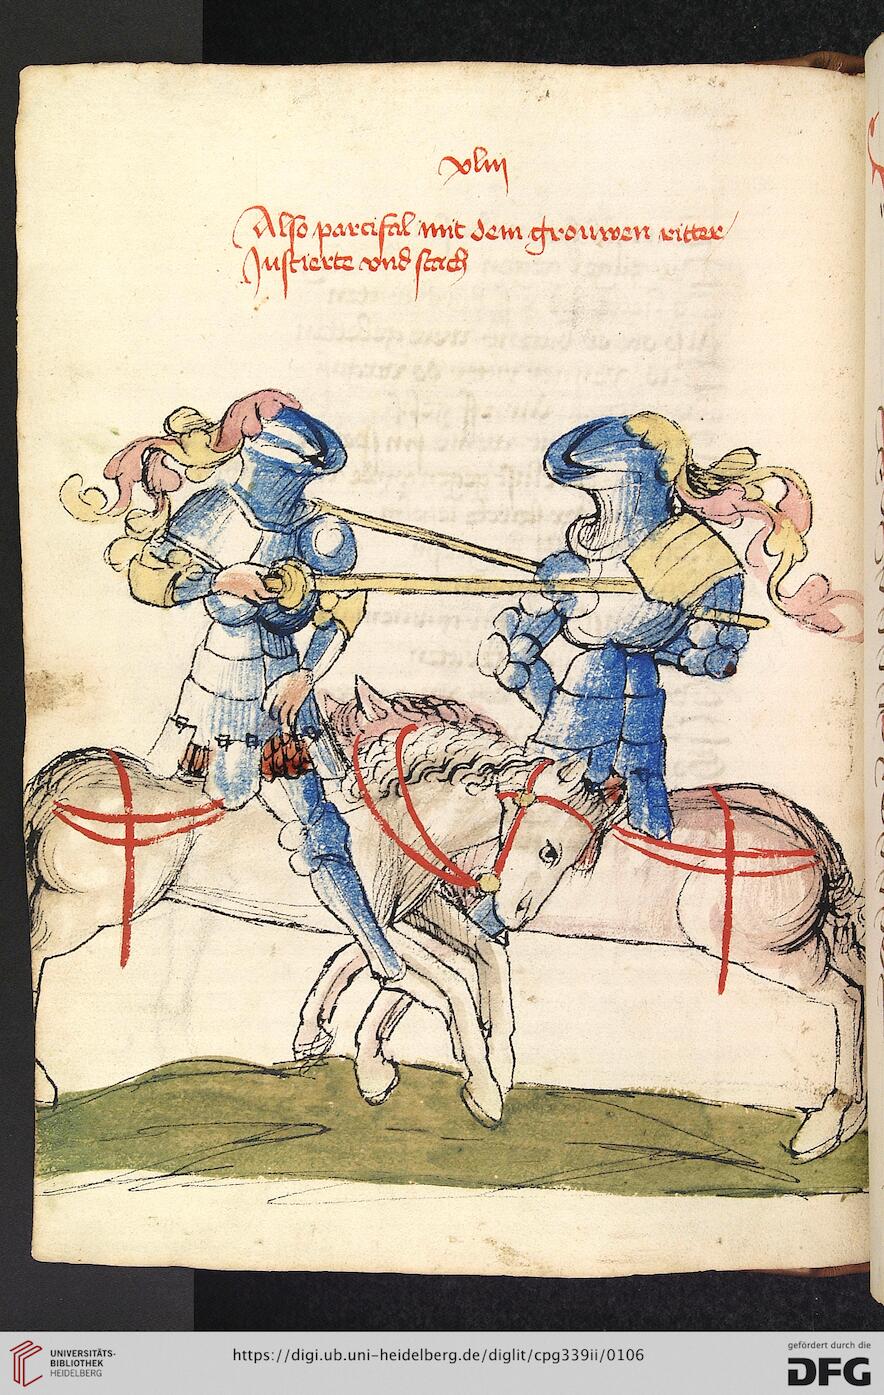 xliii
Also parcifal mit dem grouwen ritter
Justierte vnd stach
UNIVERSITÄTS-
BIBLIOTHEK
HEIDELBERG
https://digi.ub.uni-heidelberg.de/diglit/cpg339ii/0106
gefördert durch die
DFG